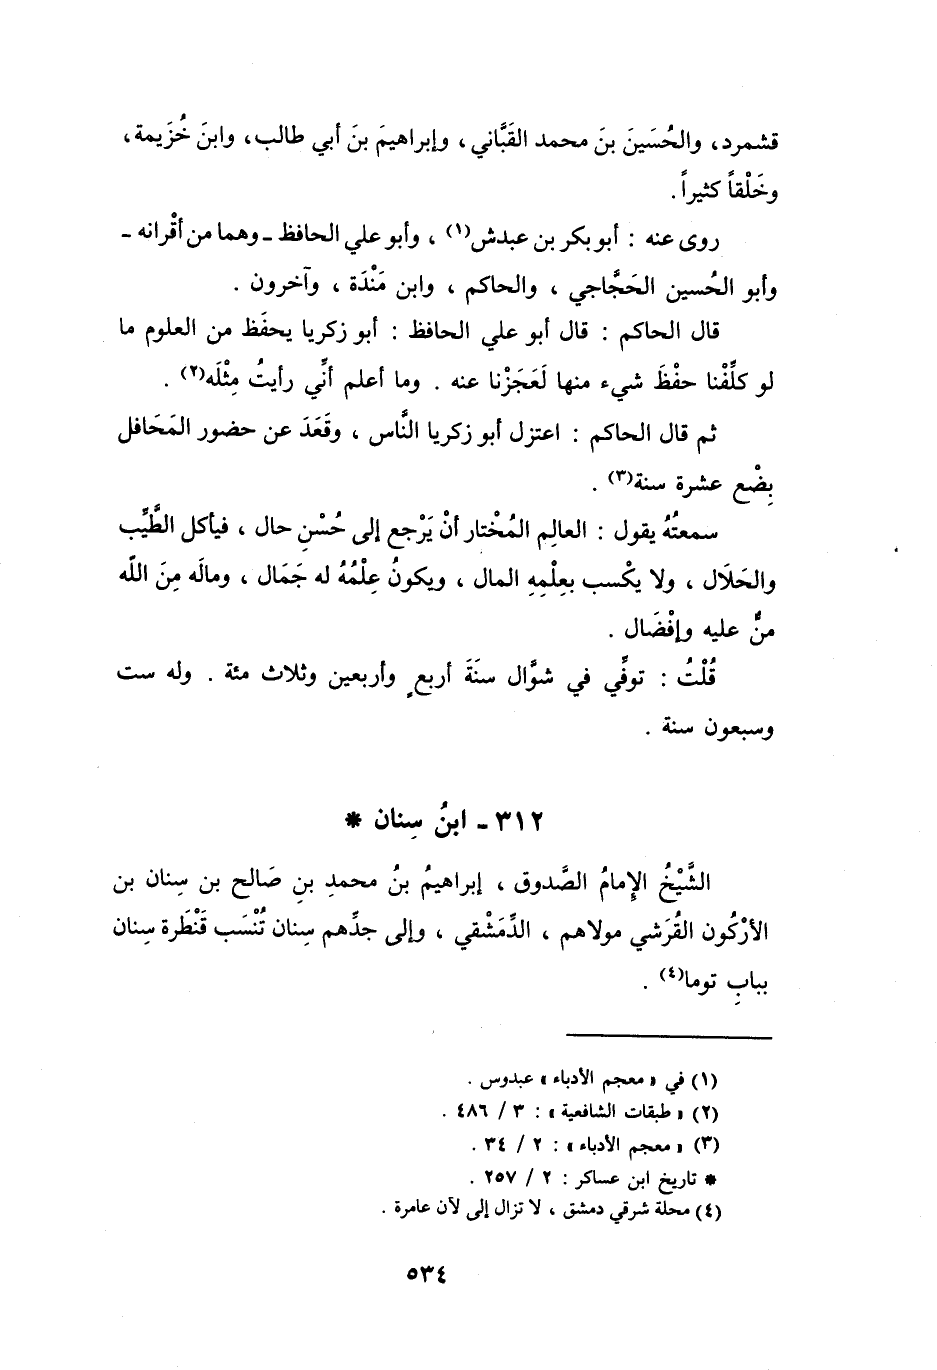 قشمرد، والحُسَينَ بنَ محمد القَبَّاني، وإبراهيمَ بنَ أبي طالب، وابنَ خُزَيمة،
وخَلْقاً كثيراً.
روى عنه : أبو بكر بن عبدش(١) ، وأبو علي الحافظ ـ وهما من أقْرانه ـ
وأبو الحُسين الحَجَّاجي ، والحاكم ، وابن مَنْدَة ، وآخرون .
قال الحاكم : قال أبو علي الحافظ : أبو زكريا يحفَظ من العلوم ما
لو كلِّفْنا حفْظَ شيء منها لَعَجَزْنا عنه . وما أعلم أنِّي رأيتُ مِثْلَه(٢) .
ثم قال الحاكم : اعتزل أبو زكريا النَّاس ، وقَعَدَ عن حضور المَحَافل
بِضْع عشرة سنة(٣) .
سمعتُهُ يقول : العالِم المُخْتار أنْ يَرْجع إلى حُسْنِ حال ، فيأكل الطَّيِّب
والحَلَال ، ولا يكْسب بعِلْمِهِ المال ، ويكونُ عِلْمُهُ له جَمَال ، ومالَه مِنَ اللّه
منٌّ عليه وإفْضَال .
قُلْتُ : توفِّي في شوَّال سنَةَ أربعٍ وأربعين وثلاث مئة . وله ست
وسبعون سنة .
٣١٢ ـ ابنُ سِنان *
الشَّيْخُ الإِمامُ الصَّدوق ، إبراهيمُ بنُ محمدِ بنِ صَالح بن سِنان بن
الأرْكُون القُرَشي مولاهم ، الدِّمَشْقي ، وإلى جدِّهم سِنان تُنْسَب قَنْطَرة سِنان
ببابِ توما(٤) .
(١) في « معجم الأدباء » عبدوس .
(٢) « طبقات الشافعية » : ٣ / ٤٨٦ .
(٣) « معجم الأدباء » : ٢ / ٣٤ .
* تاريخ ابن عساكر : ٢ / ٢٥٧ .
(٤) محلة شرقي دمشق ، لا تزال إلى لآن عامرة .
٥٣٤